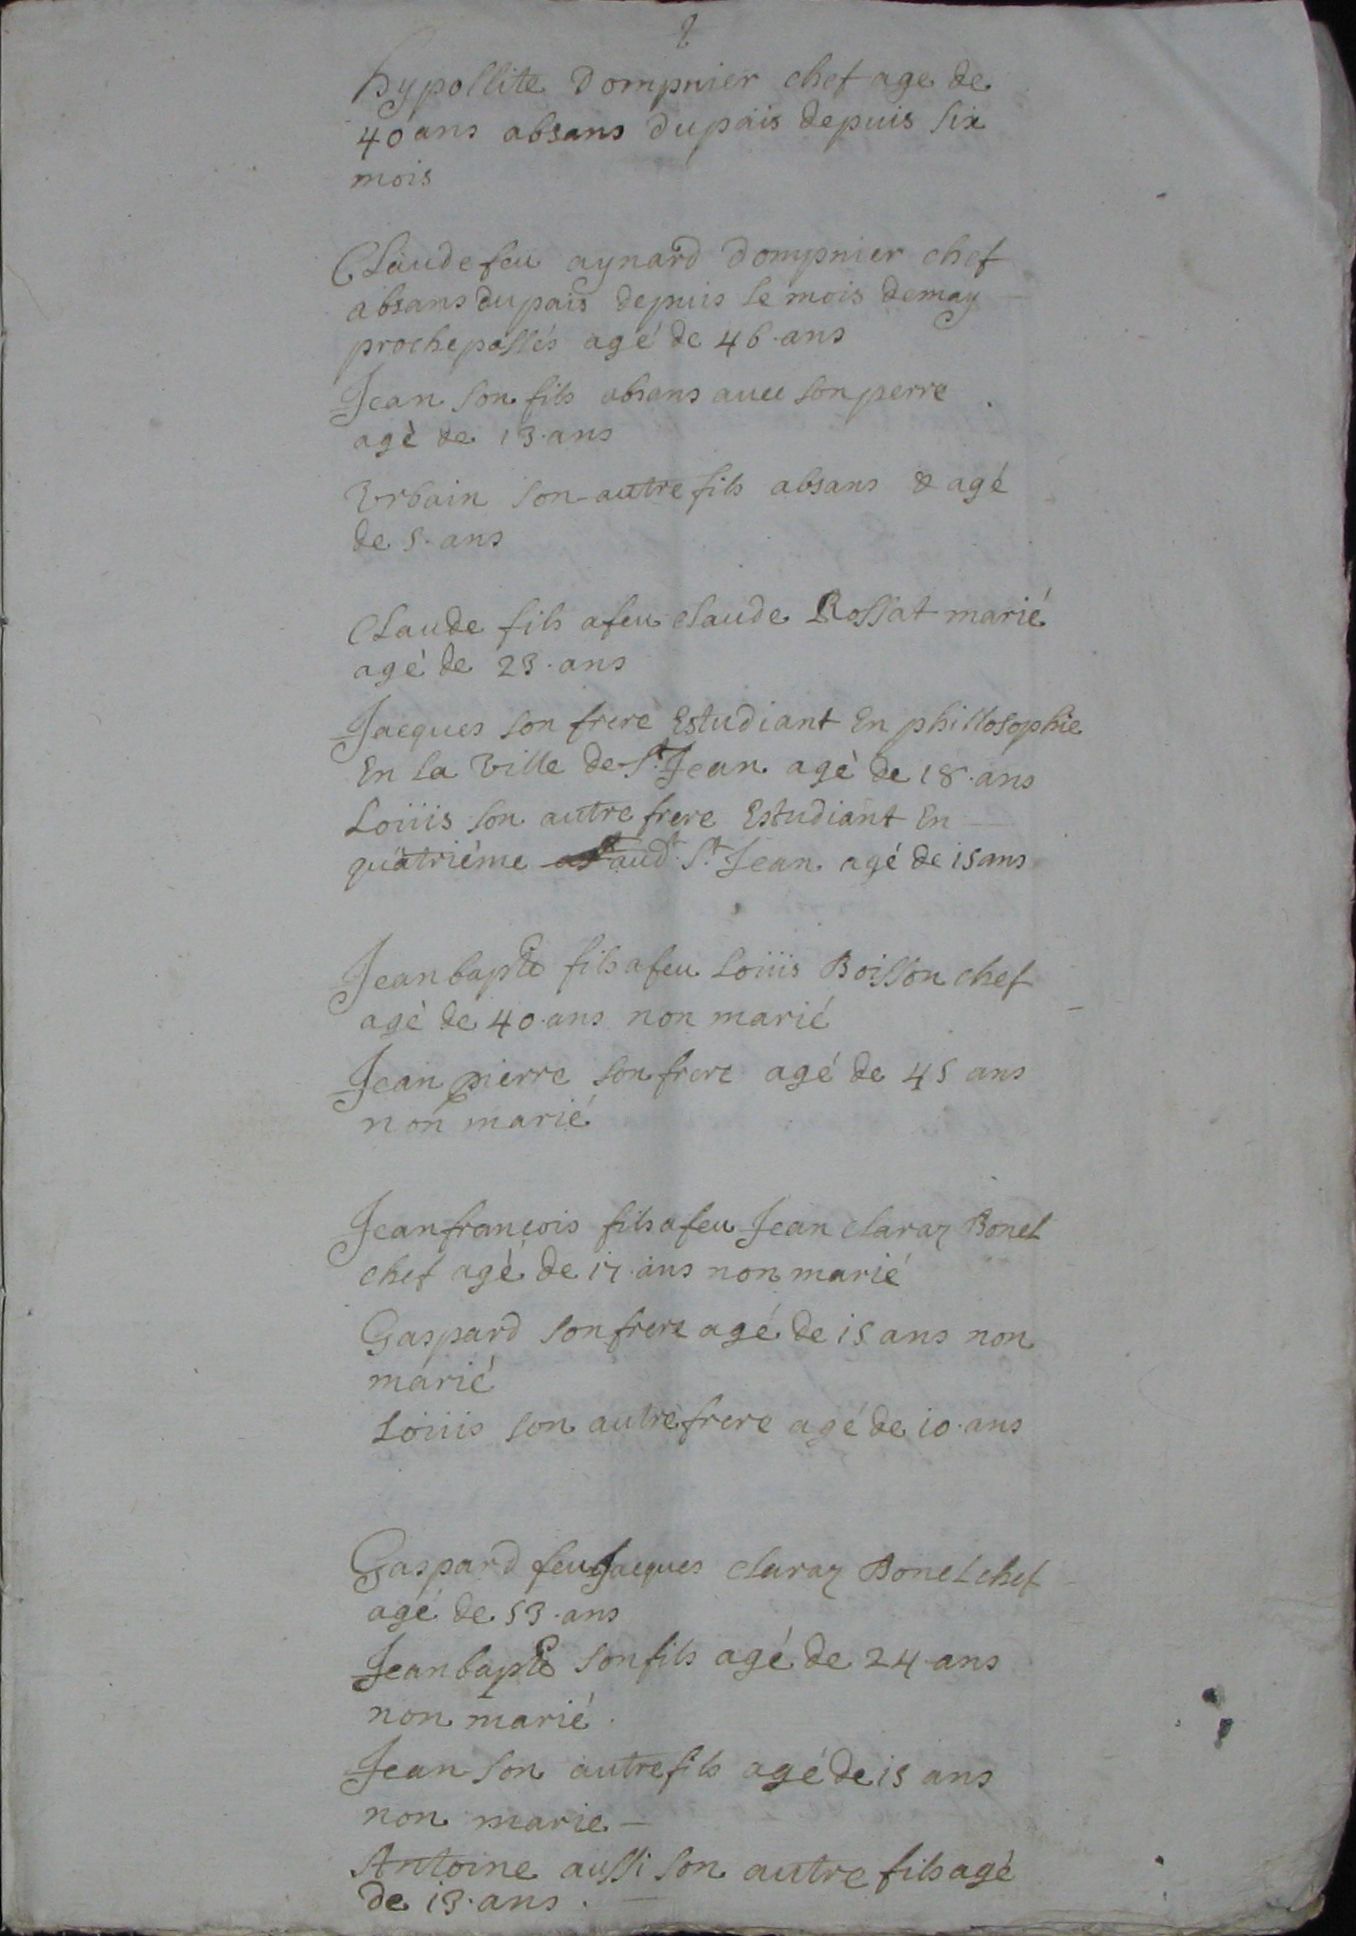 hypollite Dompnier chef age de
40 ans absans du païs depuis six
mois
Claude feu aynard Dompnier chef
absans du païs depuis le mois de may
proche passés agé de 46 ans
Jean son fils absans avec son perre
agé de 13 ans
Vrbain son autre fils absans & agé
de 5 ans
Claude fils a feu claude Rossat marié
agé de 23 ans
Jacques son frere Estudiant En phillosophie
En La Ville de St Jean agé de 18 ans
Loüis son autre frere Estudiant En
quatriéme audt St Jean agé de 15 ans
Jean bapte fils a feu Loüis Boisson chef
agé de 40 ans non marié
Jean pierre son frere agé de 45 ans
non marié
Jean françois fils a feu Jean claraz Bonel
chef agé de 17 ans non marié
Gaspard son frere agé de 15 ans non
marié
Loüis son autre frere agé de 10 ans
Gaspard feu Jacques claraz Bonel chef
agé de 53 ans
Jean bapte son fils agé de 24 ans
non marié
Jean son autre fils agé de 15 ans
non marié
Antoine aussi son autre fils agé
de 13 ans